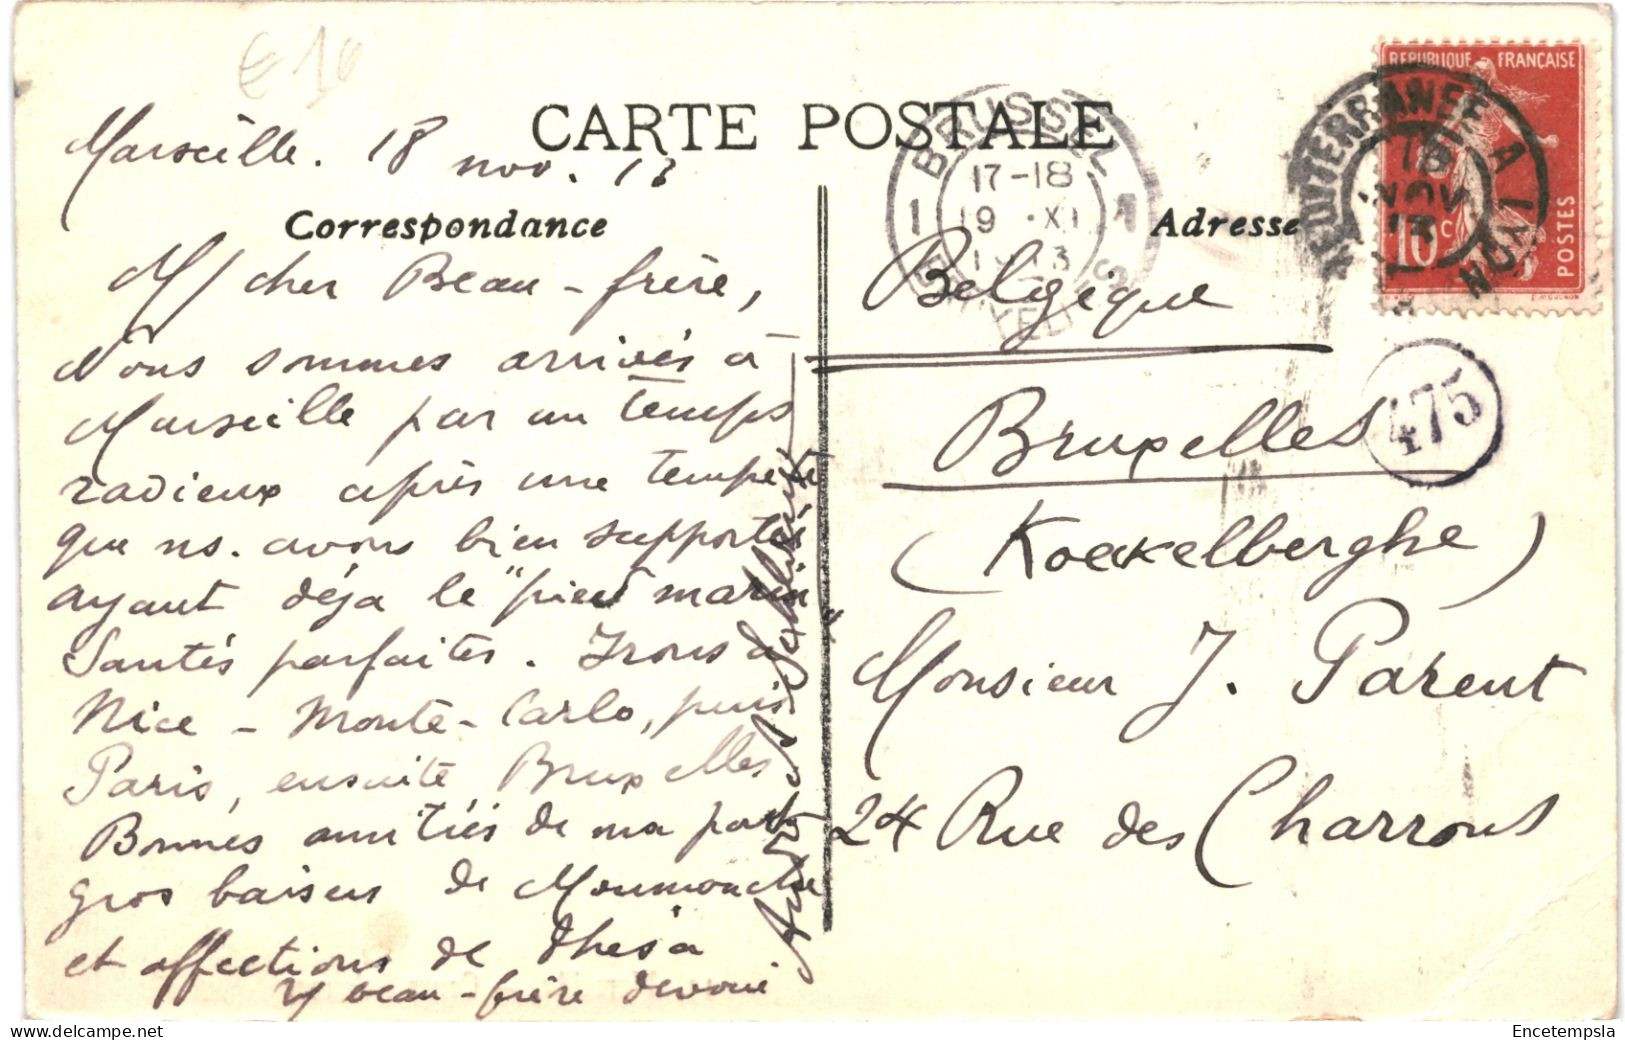 €10
CARTE POSTALE
Marseille. 18 nov. 13
Correspondance
M/ cher Beau-frère,
Nous sommes arrivés à
Marseille par un temps
radieux après une tempête
que ns. avons bien supportée
ayant déjà le "pied marin"
Santés parfaites. Irons à
Nice - Monte-Carlo, puis
Paris, ensuite Bruxelles
Bonnes amitiés de ma part
gros baisers de Moumouche
et affections de Thésa
beau-frère dévoué
Adresse
Belgique
Bruxelles
(Koekelberghe)
Monsieur J. Parent
24 Rue des Charrons
BRUSSEL
1 1
17-18
19 XI
1913
BRUXELLES
REPUBLIQUE FRANÇAISE
10c
POSTES
MEDITERRANEE A LYON
18
NOV
13
475
Encetempsla